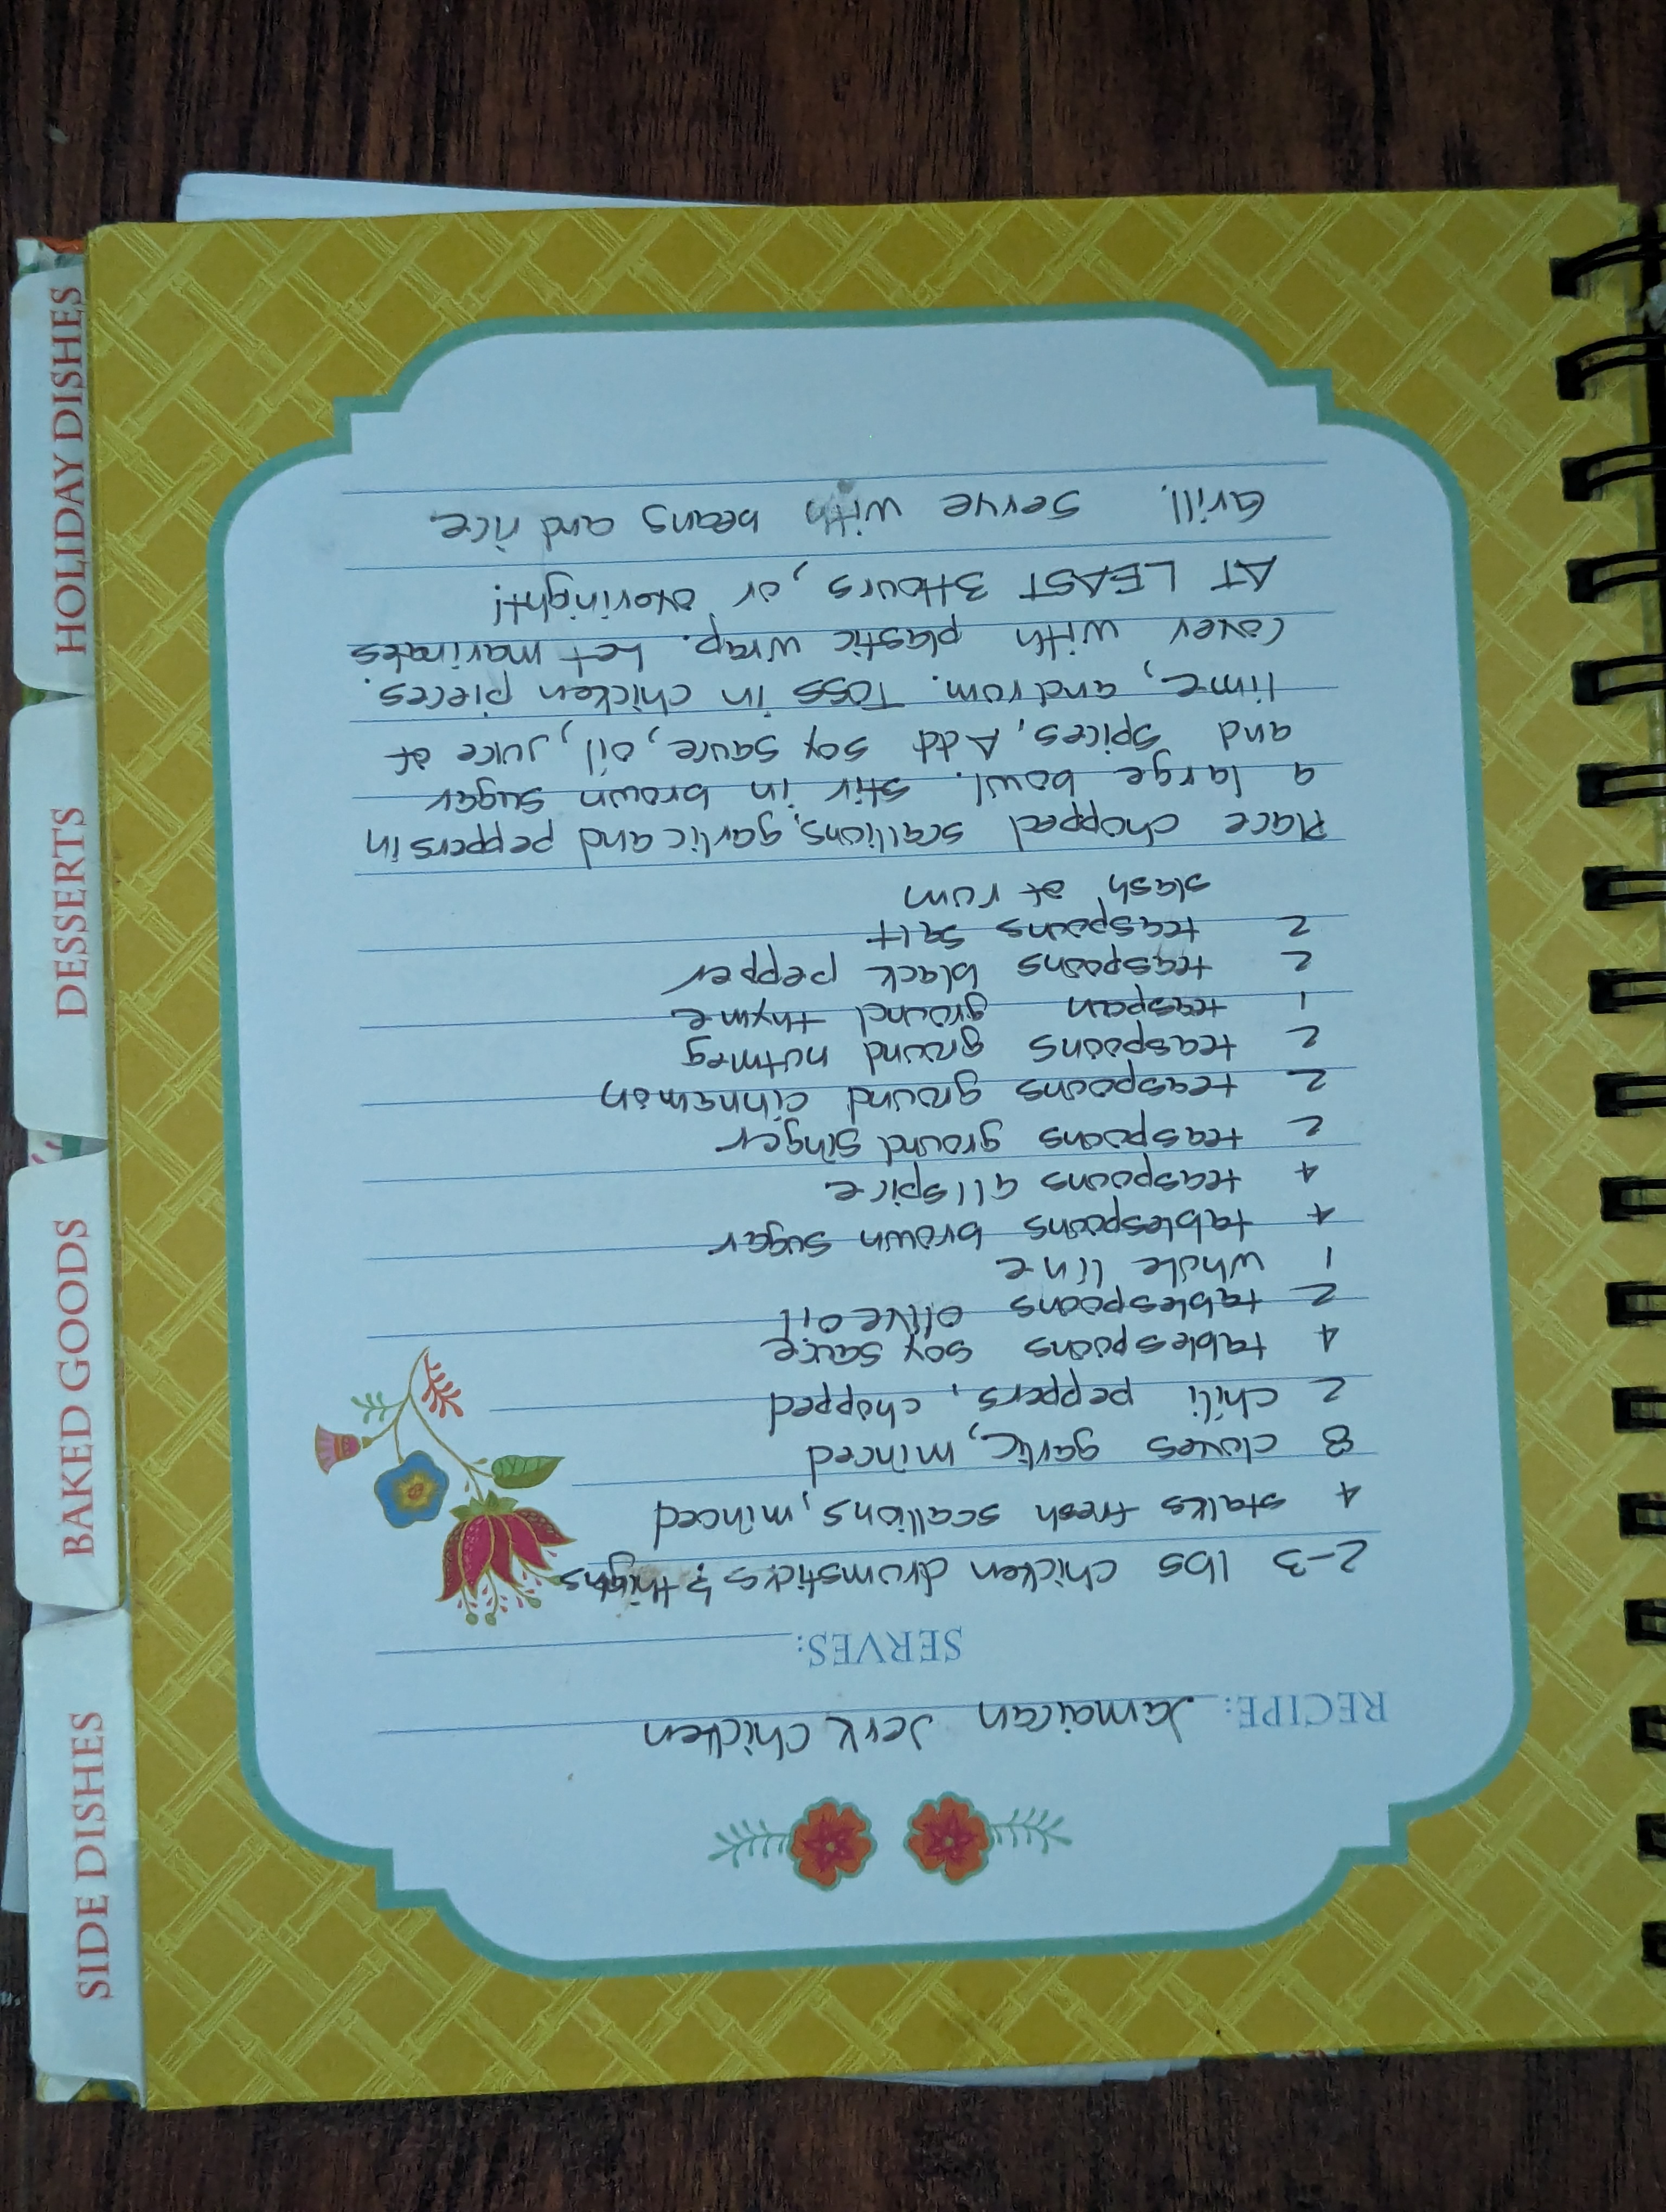 RECIPE: Jamaican Jerk Chicken
SERVES:
2-3 lbs chicken drumsticks & thighs
4 stalks fresh scallions, minced
8 cloves garlic, minced
2 chili peppers, chopped
4 tablespoons soy sauce
2 tablespoons olive oil
1 whole lime
4 tablespoons brown sugar
4 teaspoons allspice
2 teaspoons ground ginger
2 teaspoons ground cinnamon
2 teaspoons ground nutmeg
1 teaspoon ground thyme
2 teaspoons black pepper
2 teaspoons salt
slash of rum
Place chopped scallions, garlic and peppers in
a large bowl. Stir in brown sugar
and spices, Add soy sauce, oil, juice of
lime, and rum. Toss in chicken pieces.
Cover with plastic wrap. Let marinates
AT LEAST 3 Hours, or overinght!
Grill. Serve with beans and rice.
SIDE DISHES
BAKED GOODS
DESSERTS
HOLIDAY DISHES